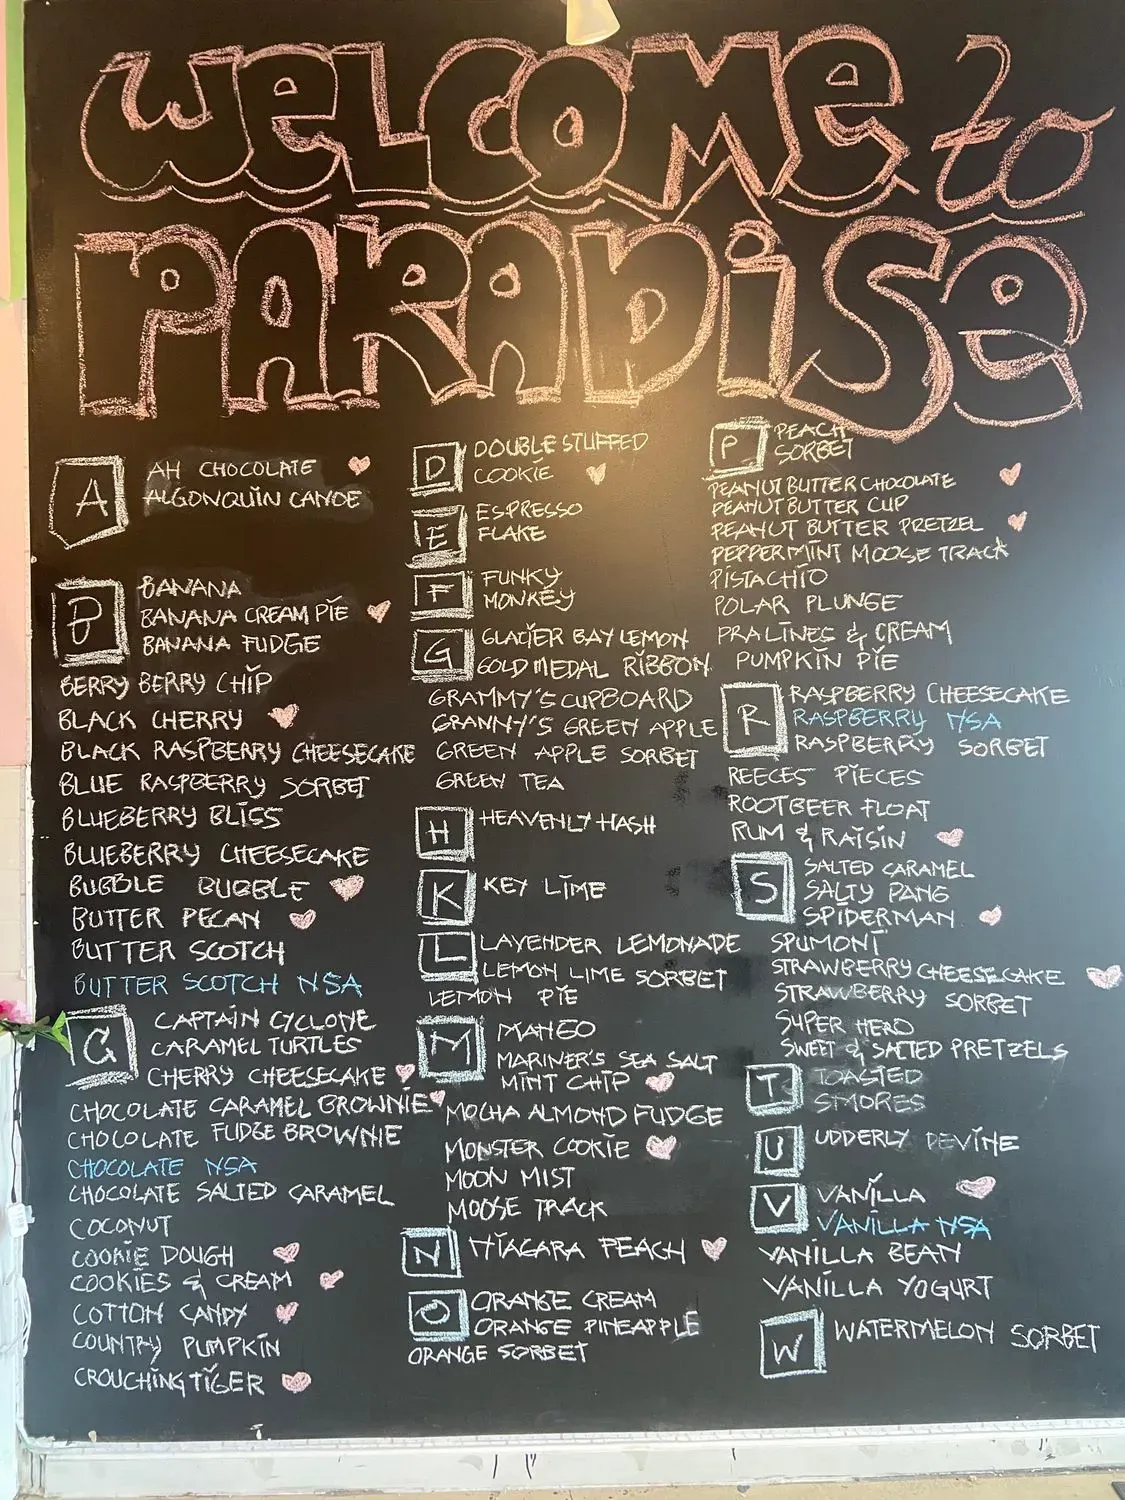 WELCOME to
PARADISE
A
AH CHOCOLATE
ALGONQUIN CANOE
B
BANANA
BANANA CREAM PIE
BANANA FUDGE
BERRY BERRY CHIP
BLACK CHERRY
BLACK RASPBERRY CHEESECAKE
BLUE RASPBERRY SORBET
BLUEBERRY BLISS
BLUEBERRY CHEESECAKE
BUBBLE BUBBLE
BUTTER PECAN
BUTTER SCOTCH
BUTTER SCOTCH NSA
C
CAPTAIN CYCLONE
CARAMEL TURTLES
CHERRY CHEESECAKE
CHOCOLATE CARAMEL BROWNIE
CHOCOLATE FUDGE BROWNIE
CHOCOLATE NSA
CHOCOLATE SALTED CARAMEL
COCONUT
COOKIE DOUGH
COOKIES & CREAM
COTTON CANDY
COUNTRY PUMPKIN
CROUCHING TIGER
D
DOUBLE STUFFED
COOKIE
E
ESPRESSO
FLAKE
F
FUNKY
MONKEY
G
GLACIER BAY LEMON
GOLD MEDAL RIBBON
GRAMMY'S CUPBOARD
GRANNY'S GREEN APPLE
GREEN APPLE SORBET
GREEN TEA
H
HEAVENLY HASH
K
KEY LIME
L
LAVENDER LEMONADE
LEMON LIME SORBET
LEMON PIE
M
MANGO
MARINER'S SEA SALT
MINT CHIP
MOCHA ALMOND FUDGE
MONSTER COOKIE
MOON MIST
MOOSE TRACK
N
NIAGARA PEACH
O
ORANGE CREAM
ORANGE PINEAPPLE
ORANGE SORBET
P
PEACH
SORBET
PEANUT BUTTER CHOCOLATE
PEANUT BUTTER CUP
PEANUT BUTTER PRETZEL
PEPPERMINT MOOSE TRACK
PISTACHIO
POLAR PLUNGE
PRALINES & CREAM
PUMPKIN PIE
R
RASPBERRY CHEESECAKE
RASPBERRY NSA
RASPBERRY SORBET
REECES PIECES
ROOTBEER FLOAT
RUM & RAISIN
S
SALTED CARAMEL
SALTY DANG
SPIDERMAN
SPUMONI
STRAWBERRY CHEESECAKE
STRAWBERRY SORBET
SUPER HERO
SWEET & SALTED PRETZELS
T
TOASTED
SMORES
U
UDDERLY DEVINE
V
VANILLA
VANILLA NSA
VANILLA BEAN
VANILLA YOGURT
W
WATERMELON SORBET